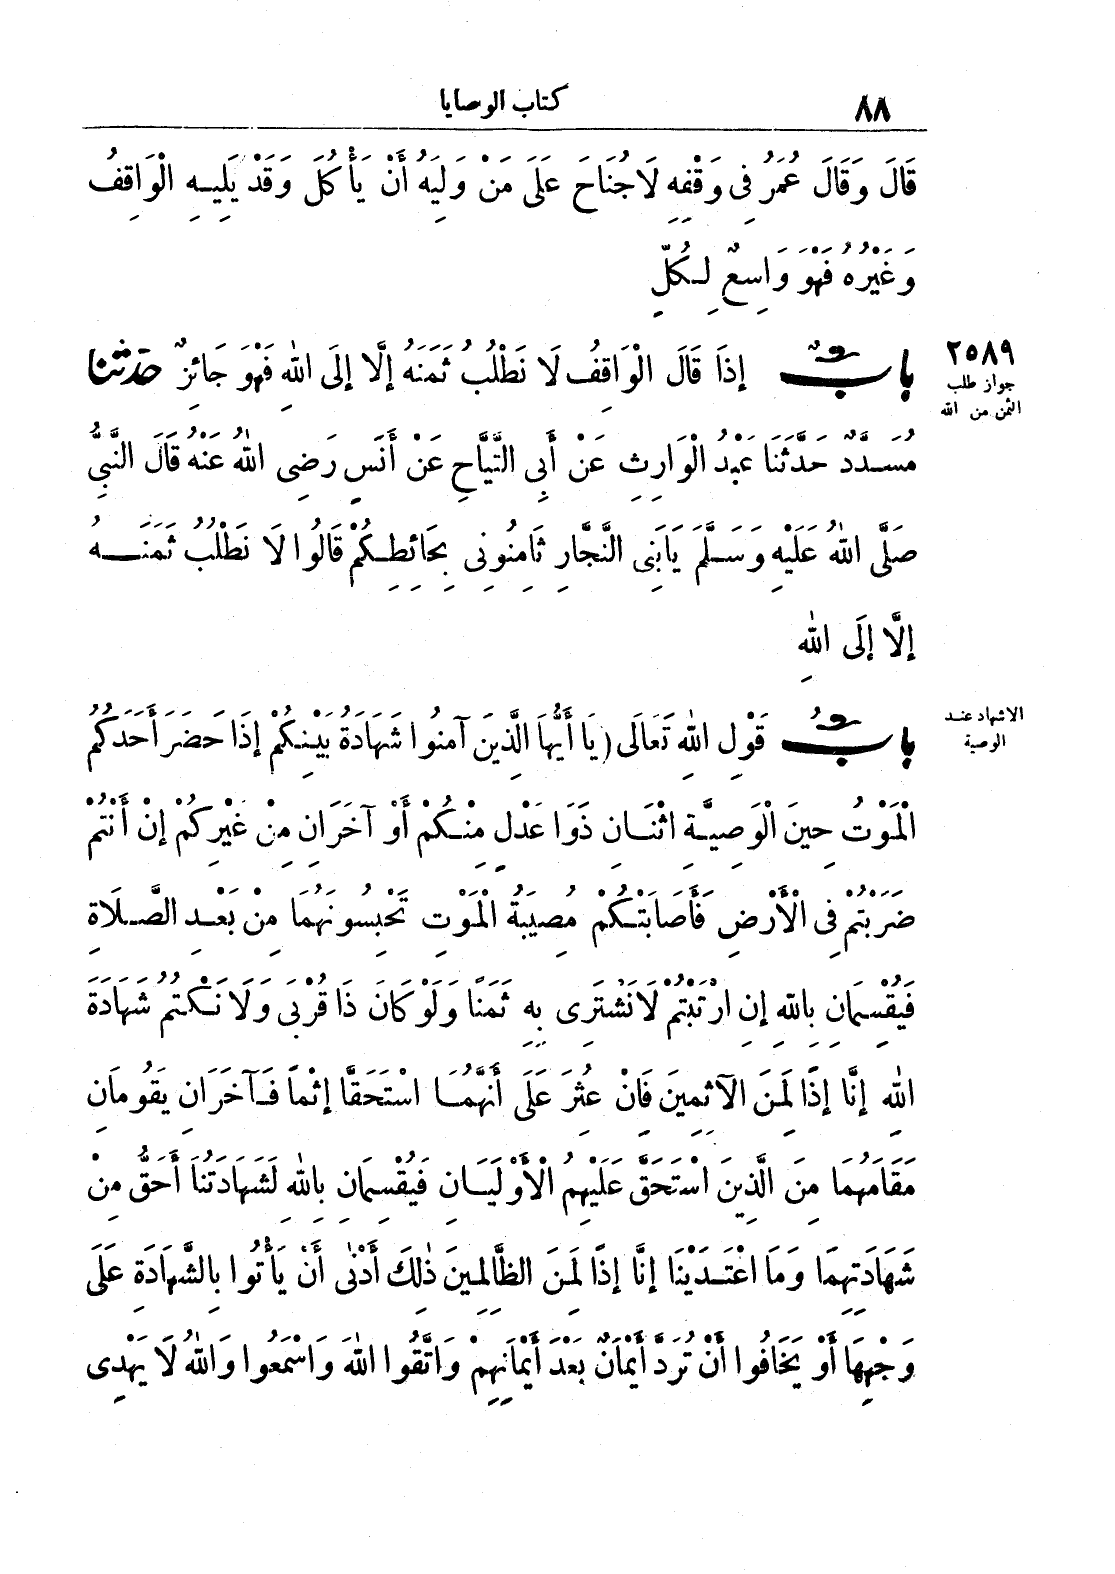 ٨٨ كتاب الوصايا
قَالَ وَقَالَ عُمَرُ فِى وَقْفِهِ لَا جُنَاحَ عَلَى مَنْ وَلِيَهُ أَنْ يَأْكُلَ وَقَدْ يَلِيهِ الْوَاقِفُ
وَغَيْرُهُ فَهْوَ وَاسِعٌ لِكُلٍّ
٢٥٨٩
جواز طلب
الثمن من الله
بابٌ إِذَا قَالَ الْوَاقِفُ لَا نَطْلُبُ ثَمَنَهُ إِلَّا إِلَى اللهِ فَهْوَ جَائِزٌ حدثنا
مُسَدَّدٌ حَدَّثَنَا عَبْدُ الْوَارِثِ عَنْ أَبِى التَّيَّاحِ عَنْ أَنَسٍ رَضِىَ اللهُ عَنْهُ قَالَ النَّبِىُّ
صَلَّى اللهُ عَلَيْهِ وَسَلَّمَ يَابَنِى النَّجَّارِ ثَامِنُونِى بِحَائِطِكُمْ قَالُوا لَا نَطْلُبُ ثَمَنَهُ
إِلَّا إِلَى اللهِ
الاشهاد عند
الوصية
بابُ قَوْلِ اللهِ تَعَالَى (يَا أَيُّهَا الَّذِينَ آمَنُوا شَهَادَةُ بَيْنِكُمْ إِذَا حَضَرَ أَحَدَكُمُ
الْمَوْتُ حِينَ الْوَصِيَّةِ اثْنَانِ ذَوَا عَدْلٍ مِنْكُمْ أَوْ آخَرَانِ مِنْ غَيْرِكُمْ إِنْ أَنْتُمْ
ضَرَبْتُمْ فِى الْأَرْضِ فَأَصَابَتْكُمْ مُصِيبَةُ الْمَوْتِ تَحْبِسُونَهُمَا مِنْ بَعْدِ الصَّلَاةِ
فَيُقْسِمَانِ بِاللهِ إِنِ ارْتَبْتُمْ لَا نَشْتَرِى بِهِ ثَمَنًا وَلَوْ كَانَ ذَا قُرْبَى وَلَا نَكْتُمُ شَهَادَةَ
اللهِ إِنَّا إِذًا لَمِنَ الْآثِمِينَ فَإِنْ عُثِرَ عَلَى أَنَّهُمَا اسْتَحَقَّا إِثْمًا فَآخَرَانِ يَقُومَانِ
مَقَامَهُمَا مِنَ الَّذِينَ اسْتَحَقَّ عَلَيْهِمُ الْأَوْلَيَانِ فَيُقْسِمَانِ بِاللهِ لَشَهَادَتُنَا أَحَقُّ مِنْ
شَهَادَتِهِمَا وَمَا اعْتَدَيْنَا إِنَّا إِذًا لَمِنَ الظَّالِمِينَ ذٰلِكَ أَدْنٰى أَنْ يَأْتُوا بِالشَّهَادَةِ عَلَى
وَجْهِهَا أَوْ يَخَافُوا أَنْ تُرَدَّ أَيْمَانٌ بَعْدَ أَيْمَانِهِمْ وَاتَّقُوا اللهَ وَاسْمَعُوا وَاللهُ لَا يَهْدِى